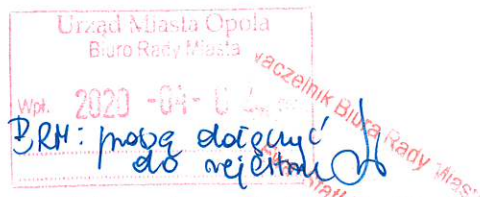 Urząd Miasta Opola
Biuro Rady Miasta
Wpł. 2020 -04-
Naczelnik Biura Rady Miasta
BRM: proszę dołączyć
do rejestru